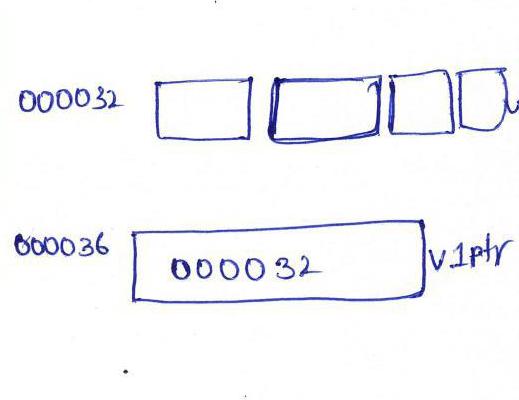 000032
000036 000032 v1ptr